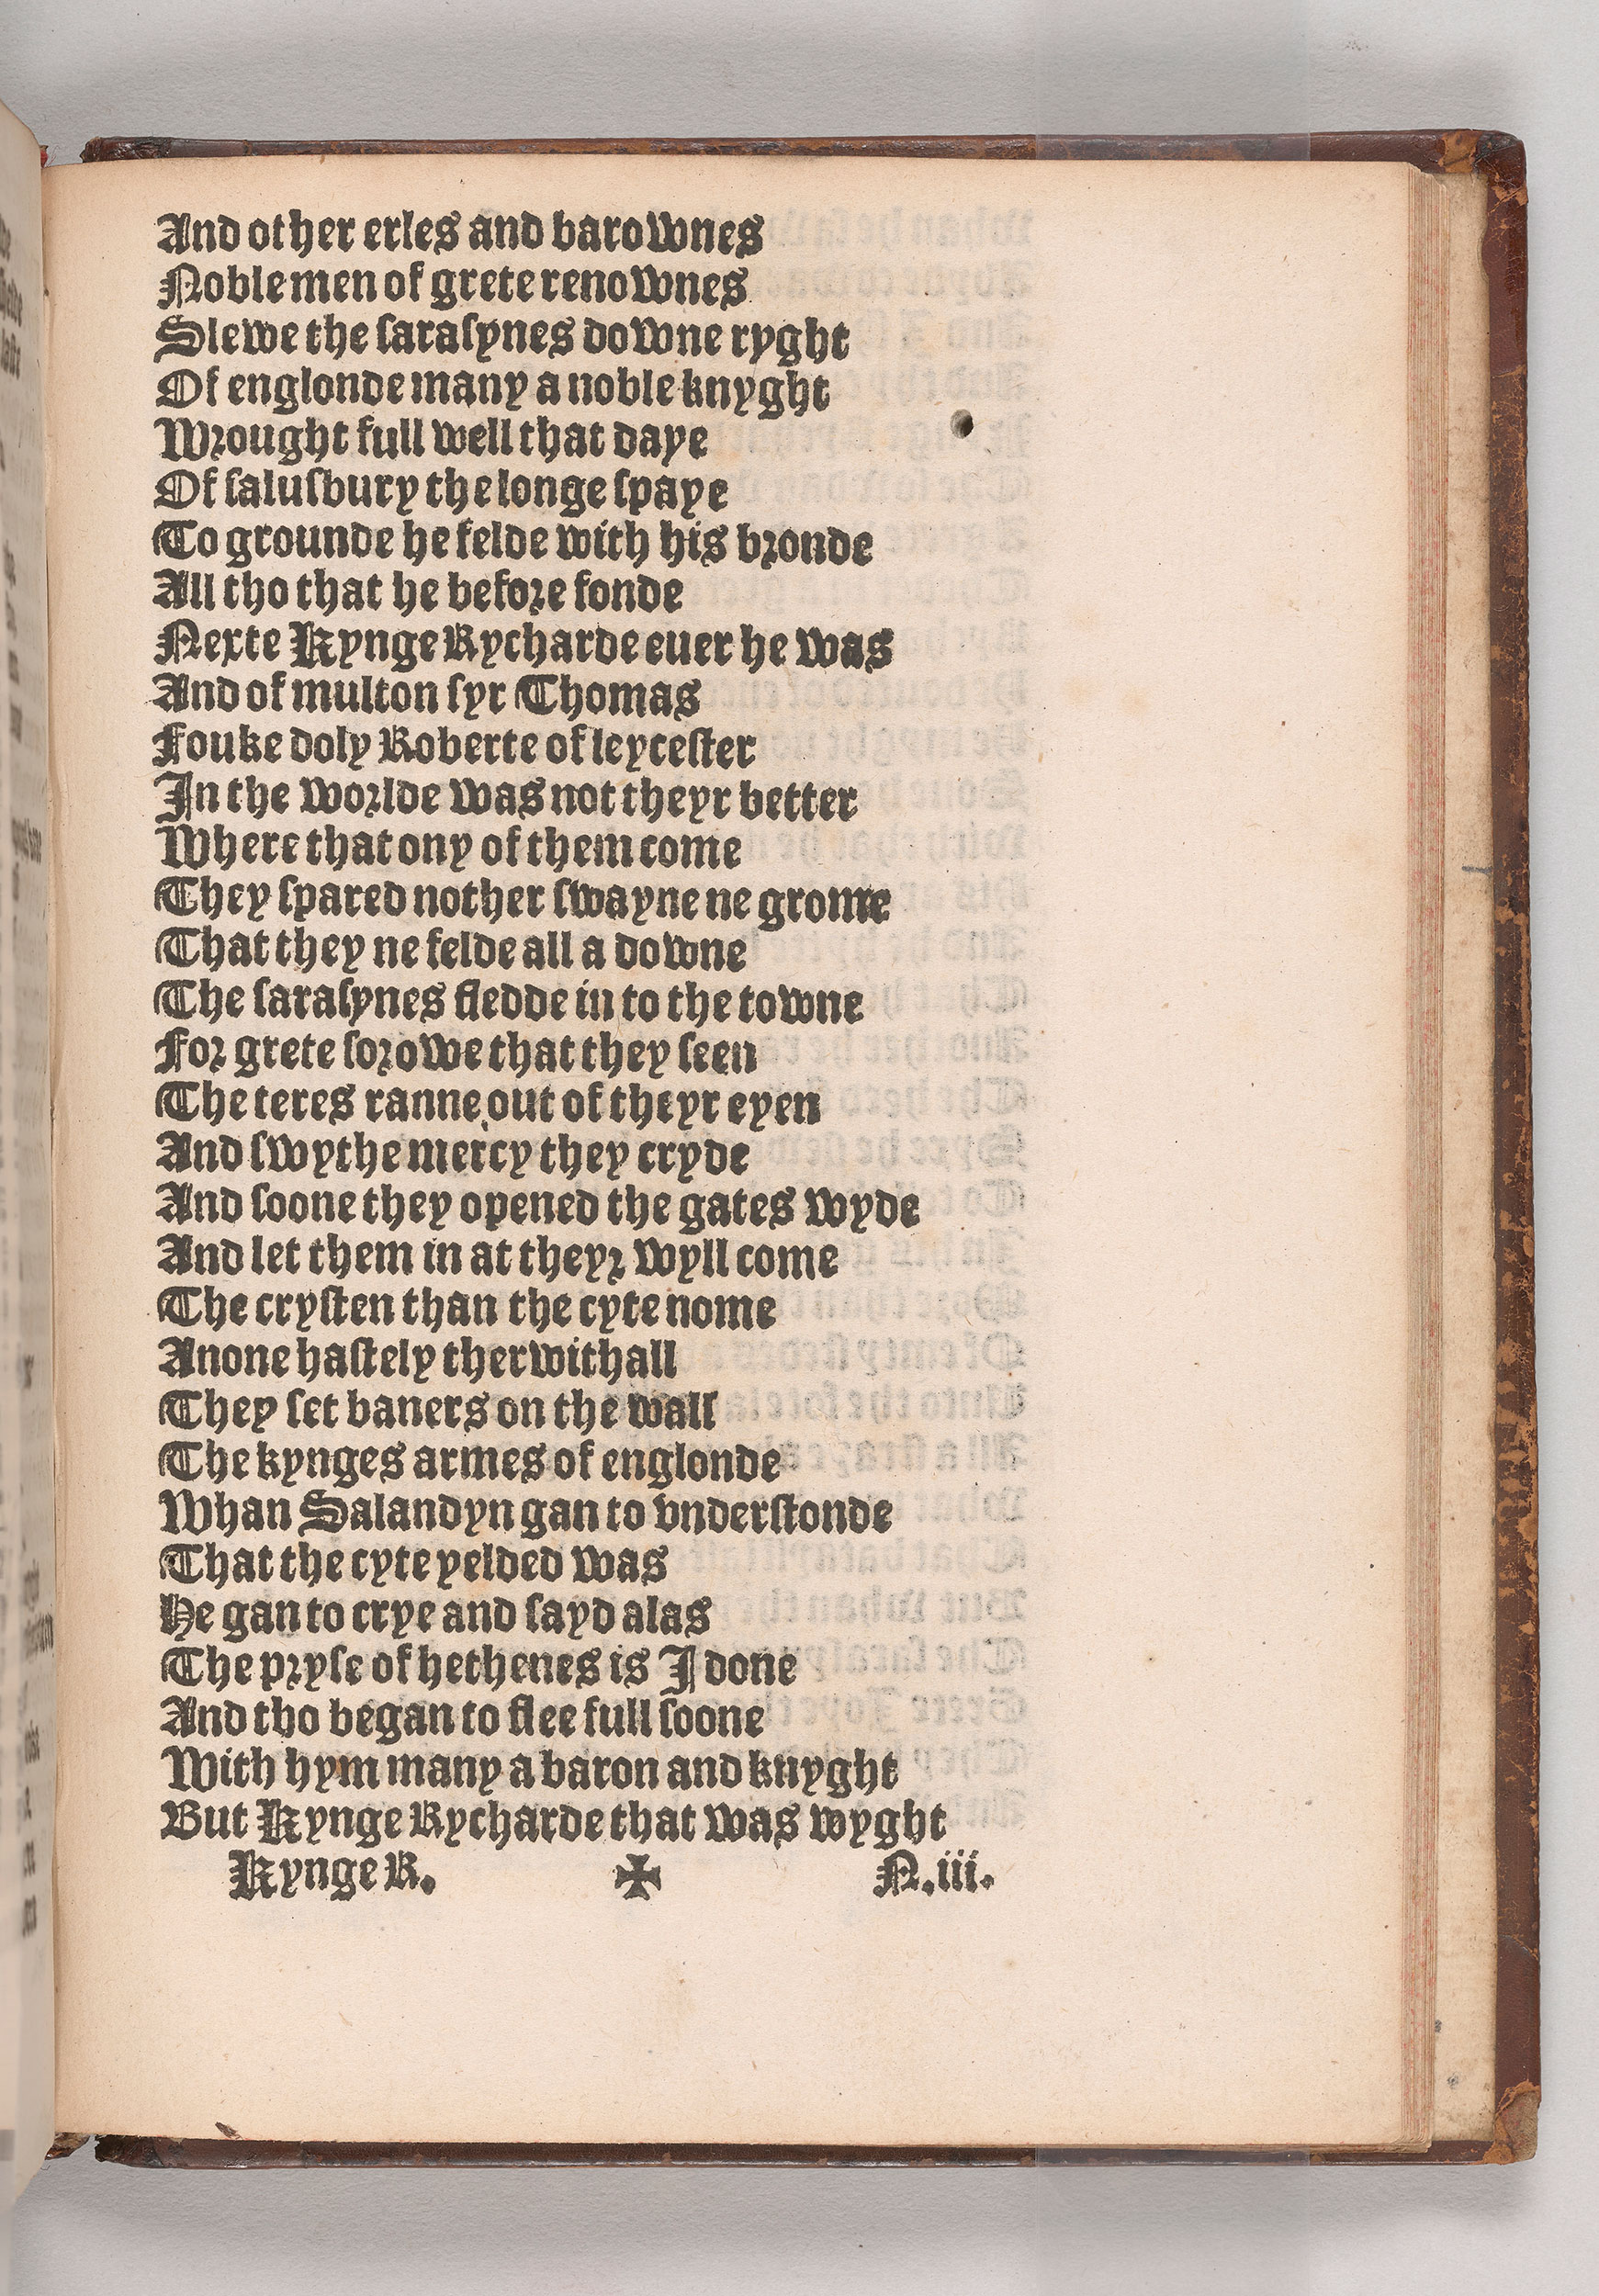 And other erles and barownes
Noble men of grete renownes
Slewe the saraſynes downe ryght
Of englonde many a noble knyght
Wrought full well that daye
Of ſaluſbury the longe ſpaye
To grounde he felde with his bronde
All tho that he before fonde
Nexte Kynge Rycharde euer he was
And of multon ſyr Thomas
Fouke doly Roberte of leyceſter
In the worlde was not theyr better
Where that ony of them come
They ſpared nother ſwayne ne grome
That they ne felde all a downe
The ſaraſynes fledde in to the towne
For grete ſorowe that they ſeen
The teres ranne out of theyr eyen
And ſwythe mercy they cryde
And ſoone they opened the gates wyde
And let them in at theyr wyll come
The cryſten than the cyte nome
Anone haſtely therwithall
They ſet baners on the wall
The kynges armes of englonde
Whan Salandyn gan to vnderſtonde
That the cyte yelded was
He gan to crye and ſayd alas
The pryſe of hethenes is I done
And tho began to flee full ſoone
With hym many a baron and knyght
But Kynge Rycharde that was wyght
Kynge R. ✠ N.iii.